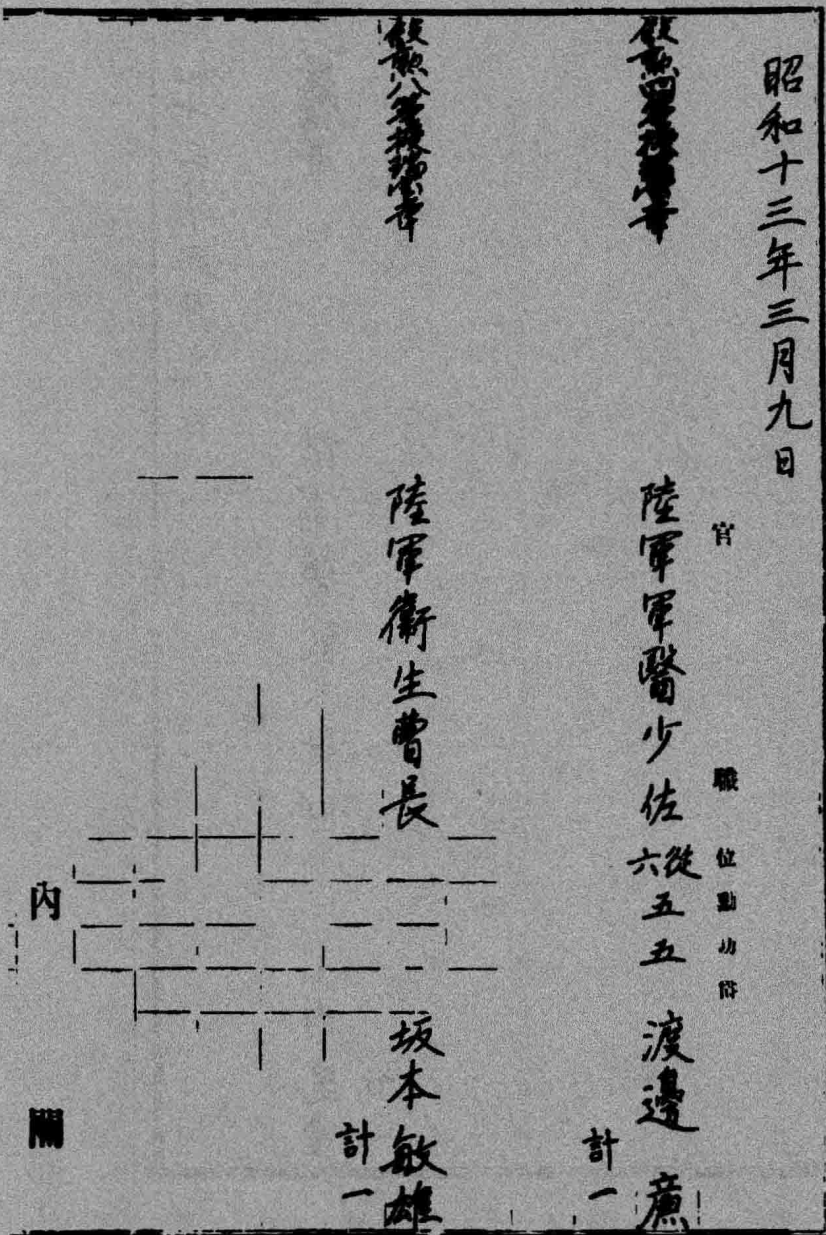 昭和十三年三月九日
官 職 位 勳 功 等
敍勳四等授瑞寶章
陸軍軍醫少佐 從六 五 五 渡邊 廉
計一
敍勳八等授瑞寶章
陸軍衞生曹長 坂本敏雄
計一
內閣